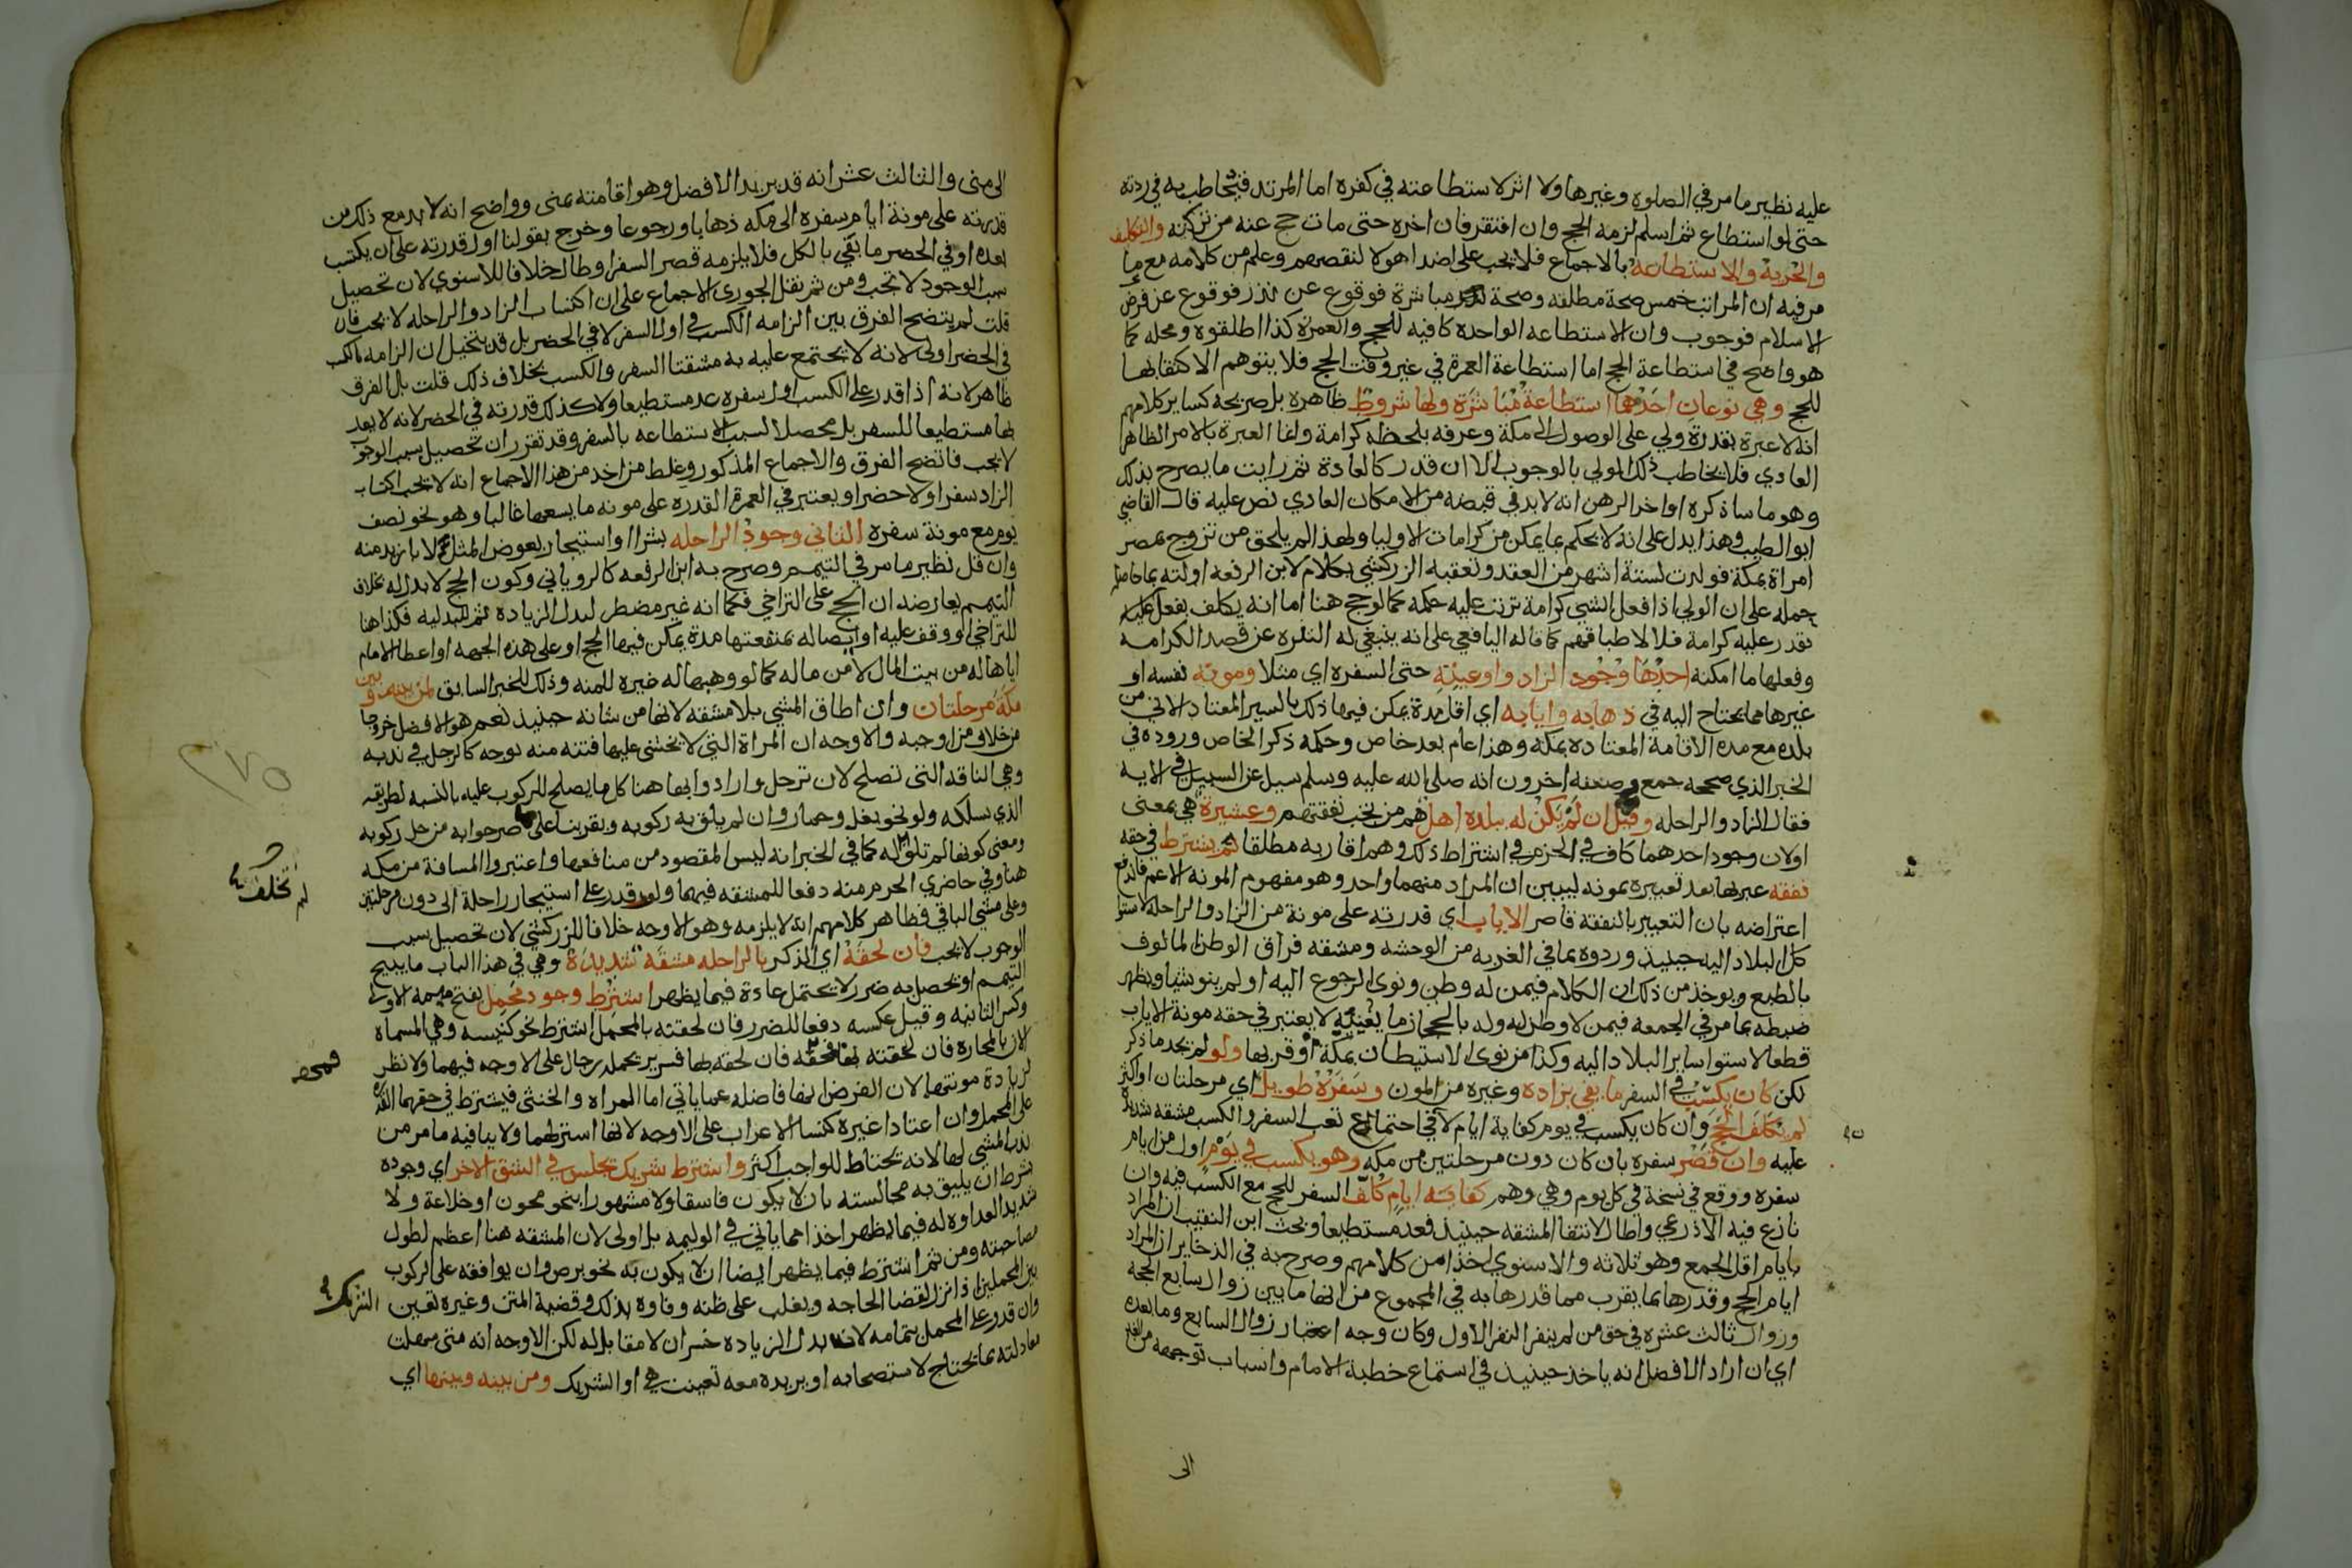 عليه نظير ما مر في الصلوة وغيرها ولا اثر لاستطاعته في كفره اما المرتد فيخاطب به في ردته
حتى لو استطاع ثم اسلم لزمه الحج وان افتقر فان اخره حتى مات حج عنه من تركته والتكليف
والحرية والاستطاعة بالاجماع فلا يجب على اضداد هولا لنقصهم وعلم من كلامه مع ما
مر فيه ان المراتب خمس صحة مطلقه وصحة مباشرة فوقوع عن نذر فوقوع عن فرض
الاسلام فوجوب وان الاستطاعه الواحدة كافيه للحج والعمرة كذا اطلقوه ومحله كما
هو واضح في استطاعة الحج اما استطاعة العمرة في غير وقت الحج فلا يتوهم الاكتفا بها
للحج وهي نوعان احدهما استطاعة مباشرة ولها شروط ظاهره بل صريحه كساير كلامهم
انه لا عبرة بقدرة ولي على الوصول الى مكة وعرفه بلحظه كرامة وانما العبرة بالامر الظاهر
العادي فلا يخاطب ذلك الولي بالوجوب الا ان قدر كالعادة ثم رايت ما يصرح بذلك
وهو ما ساذكره اواخر الرهن انه لا بد في قبضه من الامكان العادي نص عليه قال القاضي
ابو الطيب وهذا يدل على انه لا يحكم بما يمكن من كرامات الاوليا ولهذا لم يلحق من تزوج بمصر
امراة بمكة فولدت لستة اشهر من العقد وتعقبه الزركشي بكلام لابن الرفعه اولته بما حاصله
حمله على ان الولي اذا فعل الشي كرامة ترتب عليه حكمه كما لو حج هنا اما انه يكلف بفعل
يقدر عليه كرامة فلا لاطباقهم كما قاله اليافعي على انه ينبغي له التنزه عن قصد الكرامه
وفعلها ما امكنه احدها وجود الزاد واوعيته حتى السفره اي مثلا ومونه نفسه او
غيرها مما يحتاج اليه في ذهابه وايابه اي اقل مدة يمكن فيها ذلك بالسير المعتاد الاتي من
بلده مع مده الاقامة المعتاده بمكه وهذا عام بعد خاص وحكمه ذكر الخاص وروده في
الخبر الذي صححه جمع وضعفه اخرون انه صلى الله عليه وسلم سيل عن السبيل في الايه
فقال الزاد والراحله وقيل ان لم يكن له ببلده اهل هم من يجب نفقتهم وعشيرة هي بمعنى
او لان وجود احدهما كاف في الجزم في اشتراط ذلك وهم اقاربه مطلقا لم يشترط في حقه
نفقه عبر بها بعد تعبيره بمونه ليبين ان المراد منهما واحد وهو مفهوم المونه الاعم فاندفع
اعتراضه بان التعبير بالنفقة قاصر الاياب اي قدرته على مونة من الزاد والراحله لاستوا
كل البلاد اليه حينيذ وردوه بما في الغربه من الوحشه ومشقه فراق الوطن المالوف
بالطبع ويوخذ من ذلك ان الكلام فيمن له وطن ونوى الرجوع اليه او لم ينو شيا ويظهر
ضبطه بما مر في الجمعه فيمن لا وطن له وله بالحجاز ما يغنيه لا يعتبر في حقه مونة الاياب
قطعا لاستوا ساير البلاد اليه وكذا من نوى الاستيطان بمكة او قربها ولو لم يجد ما ذكر
لكن كان يكسب في السفر ما يفي بزاده وغيره من المون وسفره طويل اي مرحلتان او اكثر
لم يكلف الحج وان كان يكسب في يوم كفاية ايام لا في احتماع تعب السفر والكسب مشقه شديدة
عليه وان قصر سفره بان كان دون مرحلتين من مكه وهو يكسب في يوم اول من ايام
سفره ووقع في نسخة في كل يوم وهي وهم كفاية ايام كلف السفر للحج مع الكسب فيه وان
نازع فيه الاذرعي واطال لانتفا المشقه حينيذ فعد مستطيعا وبحث ابن النقيب ان المراد
بايام اقل الجمع وهو ثلاثه والاسنوي اخذا من كلامهم وصرح به في الذخاير ان المراد
ايام الحج وقدرها بما يقرب مما قدرها به في المجموع من انها ما بين زوال سابع الحجه
وزوال ثالث عشره في حق من لم ينفر النفر الاول وكان وجه اعتبار زوال السابع وما بعده
اي ان اراد الافضل انه ياخذ حينيذ في استماع خطبة الامام واسباب توجهه من الغد
الى
الى منى والثالث عشر انه قد يريد الافضل وهو اقامته بمنى وواضح انه لا بد مع ذلك من
قدرته على مونة ايام سفره الى مكه ذهابا ورجوعا وخرج بقولنا اول قدرته على ان يكتسب
بعده او في الحضر ما يفي بالكل فلا يلزمه قصر السفر او طال خلافا للاسنوي لان تحصيل
سبب الوجود لا تجب ومن ثم نقل الجوري الاجماع على ان اكتساب الزاد والراحله لا يجب فان
قلت لم يتضح الفرق بين الزامه الكسب في اول السفر لا في الحضر بل قد يتخيل ان الزامه بالكسب
في الحضر اولى لانه لا يجتمع عليه به مشقتا السفر والكسب بخلاف ذلك قلت بل الفرق
ظاهر لانه اذا قدر على الكسب اول سفره عد مستطيعا ولا كذلك قدرته في الحضر لانه لا يعد
بها مستطيعا للسفر بل محصلا لسبب الاستطاعه بالسفر وقد تقرر ان تحصيل سبب الوجوب
لا يجب فاتضح الفرق والاجماع المذكور وغلط من اخذ من هذا الاجماع انه لا يجب اكتساب
الزاد سفرا ولا حضرا ويعتبر في العمرة القدره على مونه ما يسعها غالبا وهو نحو نصف
يوم مع مونة سفره الثاني وجود الراحله بشرا او استيجار بعوض المثل لا بازيد منه
وان قل نظير ما مر في التيمم وصرح به ابن الرفعه كالروياني وكون الحج لا بدل له بخلاف
التيمم يعارضه ان الحج على التراخي فكما انه غير مضطر لبدل الزياده ثم للبدليه فكذا هنا
للتراخي او وقف عليه او ايصا له بمنفعتها مدة يمكن فيها الحج او على هذه الجهه او اعطا الامام
اياها له من بيت المال لا من ماله كما لو وهبها له غيره للمنه وذلك للخبر السابق لمن بينه وبين
مكة مرحلتان وان اطاق المشي بلا مشقه لانها من شانه حينيذ نعم هو الافضل خروجا
من خلاف من اوجبه والاوجه ان المراة التي لا يخشى عليها فتنه منه بوجه كالرجل في ندبه
وهي الناقه التي تصلح لان ترحل وارادوا بها هنا كل ما يصلح للركوب عليه بالنسبه لطريقه
الذي يسلكه ولو نحو بغل وحمار وان لم يلق به ركوبه وبقر بنا على ما صرحوا به من حل ركوبه
ومعنى كونها لم تخلق له كما في الخبر انه ليس المقصود من منافعها واعتبروا المسافة من مكه
هنا وفي حاضري الحرم منه دفعا للمشقه فيهما ولو قدر على استيجار راحلة الى دون مرحلتين
وعلى مشي الباقي فظاهر كلامهم انه لا يلزمه وهو الاوجه خلافا للزركشي لان تحصيل سبب
الوجوب لا يجب فان لحقه اي الذكر بالراحله مشقه شديدة وهي في هذا الباب ما يبيح
التيمم او يحصل به ضرر لا يحتمل عادة فيما يظهر اشترط وجود محمل بفتح ميمه الاولى
وكسر الثانيه وقيل عكسه دفعا للضرر فان لحقته بالمحمل اشترط نحو كنيسه وهي المسماة
الان بالمحارة فان لحقته بها فمحفه فان لحقه بها فسرير يحمله رجال على الاوجه فيهما ولا نظر
لزيادة مونتها لان الفرض انها فاضله عما ياتي اما المراه والخنثى فيشترط في حقهما القدره
على المحمل وان اعتادا غيره كنسا الاعراب على الاوجه لانها استر لهما ولا ينافيه ما مر من
ندب المشي لها لانه يحتاط للواجب اكثر واشترط شريك يجلس في الشق الاخر اي وجوده
بشرط ان يليق به مجالسته بان لا يكون فاسقا ولا مشهورا بنحو مجون او خلاعة ولا
شديد العداوه له فيما يظهر اخذا مما ياتي في الوليمه بل اولى لان المشقه هنا اعظم لطول
مصاحبته ومن ثم اشترط فيما يظهر ايضا ان لا يكون به نحو برص وان يوافقه على الركوب
بين المحملين اذا نزل لقضا الحاجه ويغلب على ظنه وفاوه بذلك وقضية المتن وغيره تعين
وان قدر على المحمل بتمامه لان بدل الزياده خسران لا مقابل له لكن الاوجه انه متى سهلت
معادلته بما يحتاج لاستصحابه او يريده معه تعينت هي او الشريك ومن بينه وبينها اي
لم تخلق
فمحفه
الشريك